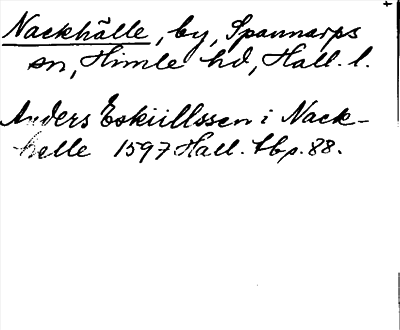 Nackhälle, by, Spannarps
sn, Himle hd, Hall. l.
Anders Eskillssen i Nack-
helle 1597 Hall. tbp. 88.